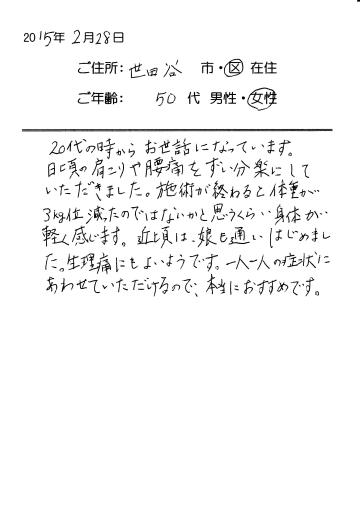 2015年 2月28日
ご住所: 世田谷 市・区 在住
ご年齢: 50 代 男性・女性
20代の時から お世話になっています。
日頃の肩こりや腰痛をずい分楽にして
いただきました。施術が終わると体重が
3kg位減ったのではないかと思うくらい身体が
軽く感じます。近頃は、娘も通いはじめまし
た。生理痛にもよいようです。一人一人の症状に
あわせていただけるので、本当におすすめです。